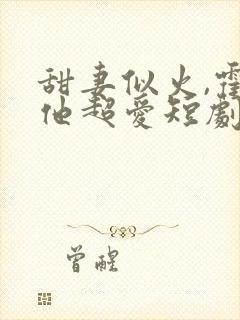 甜妻似火,霍
他超爱短劇
曾醒